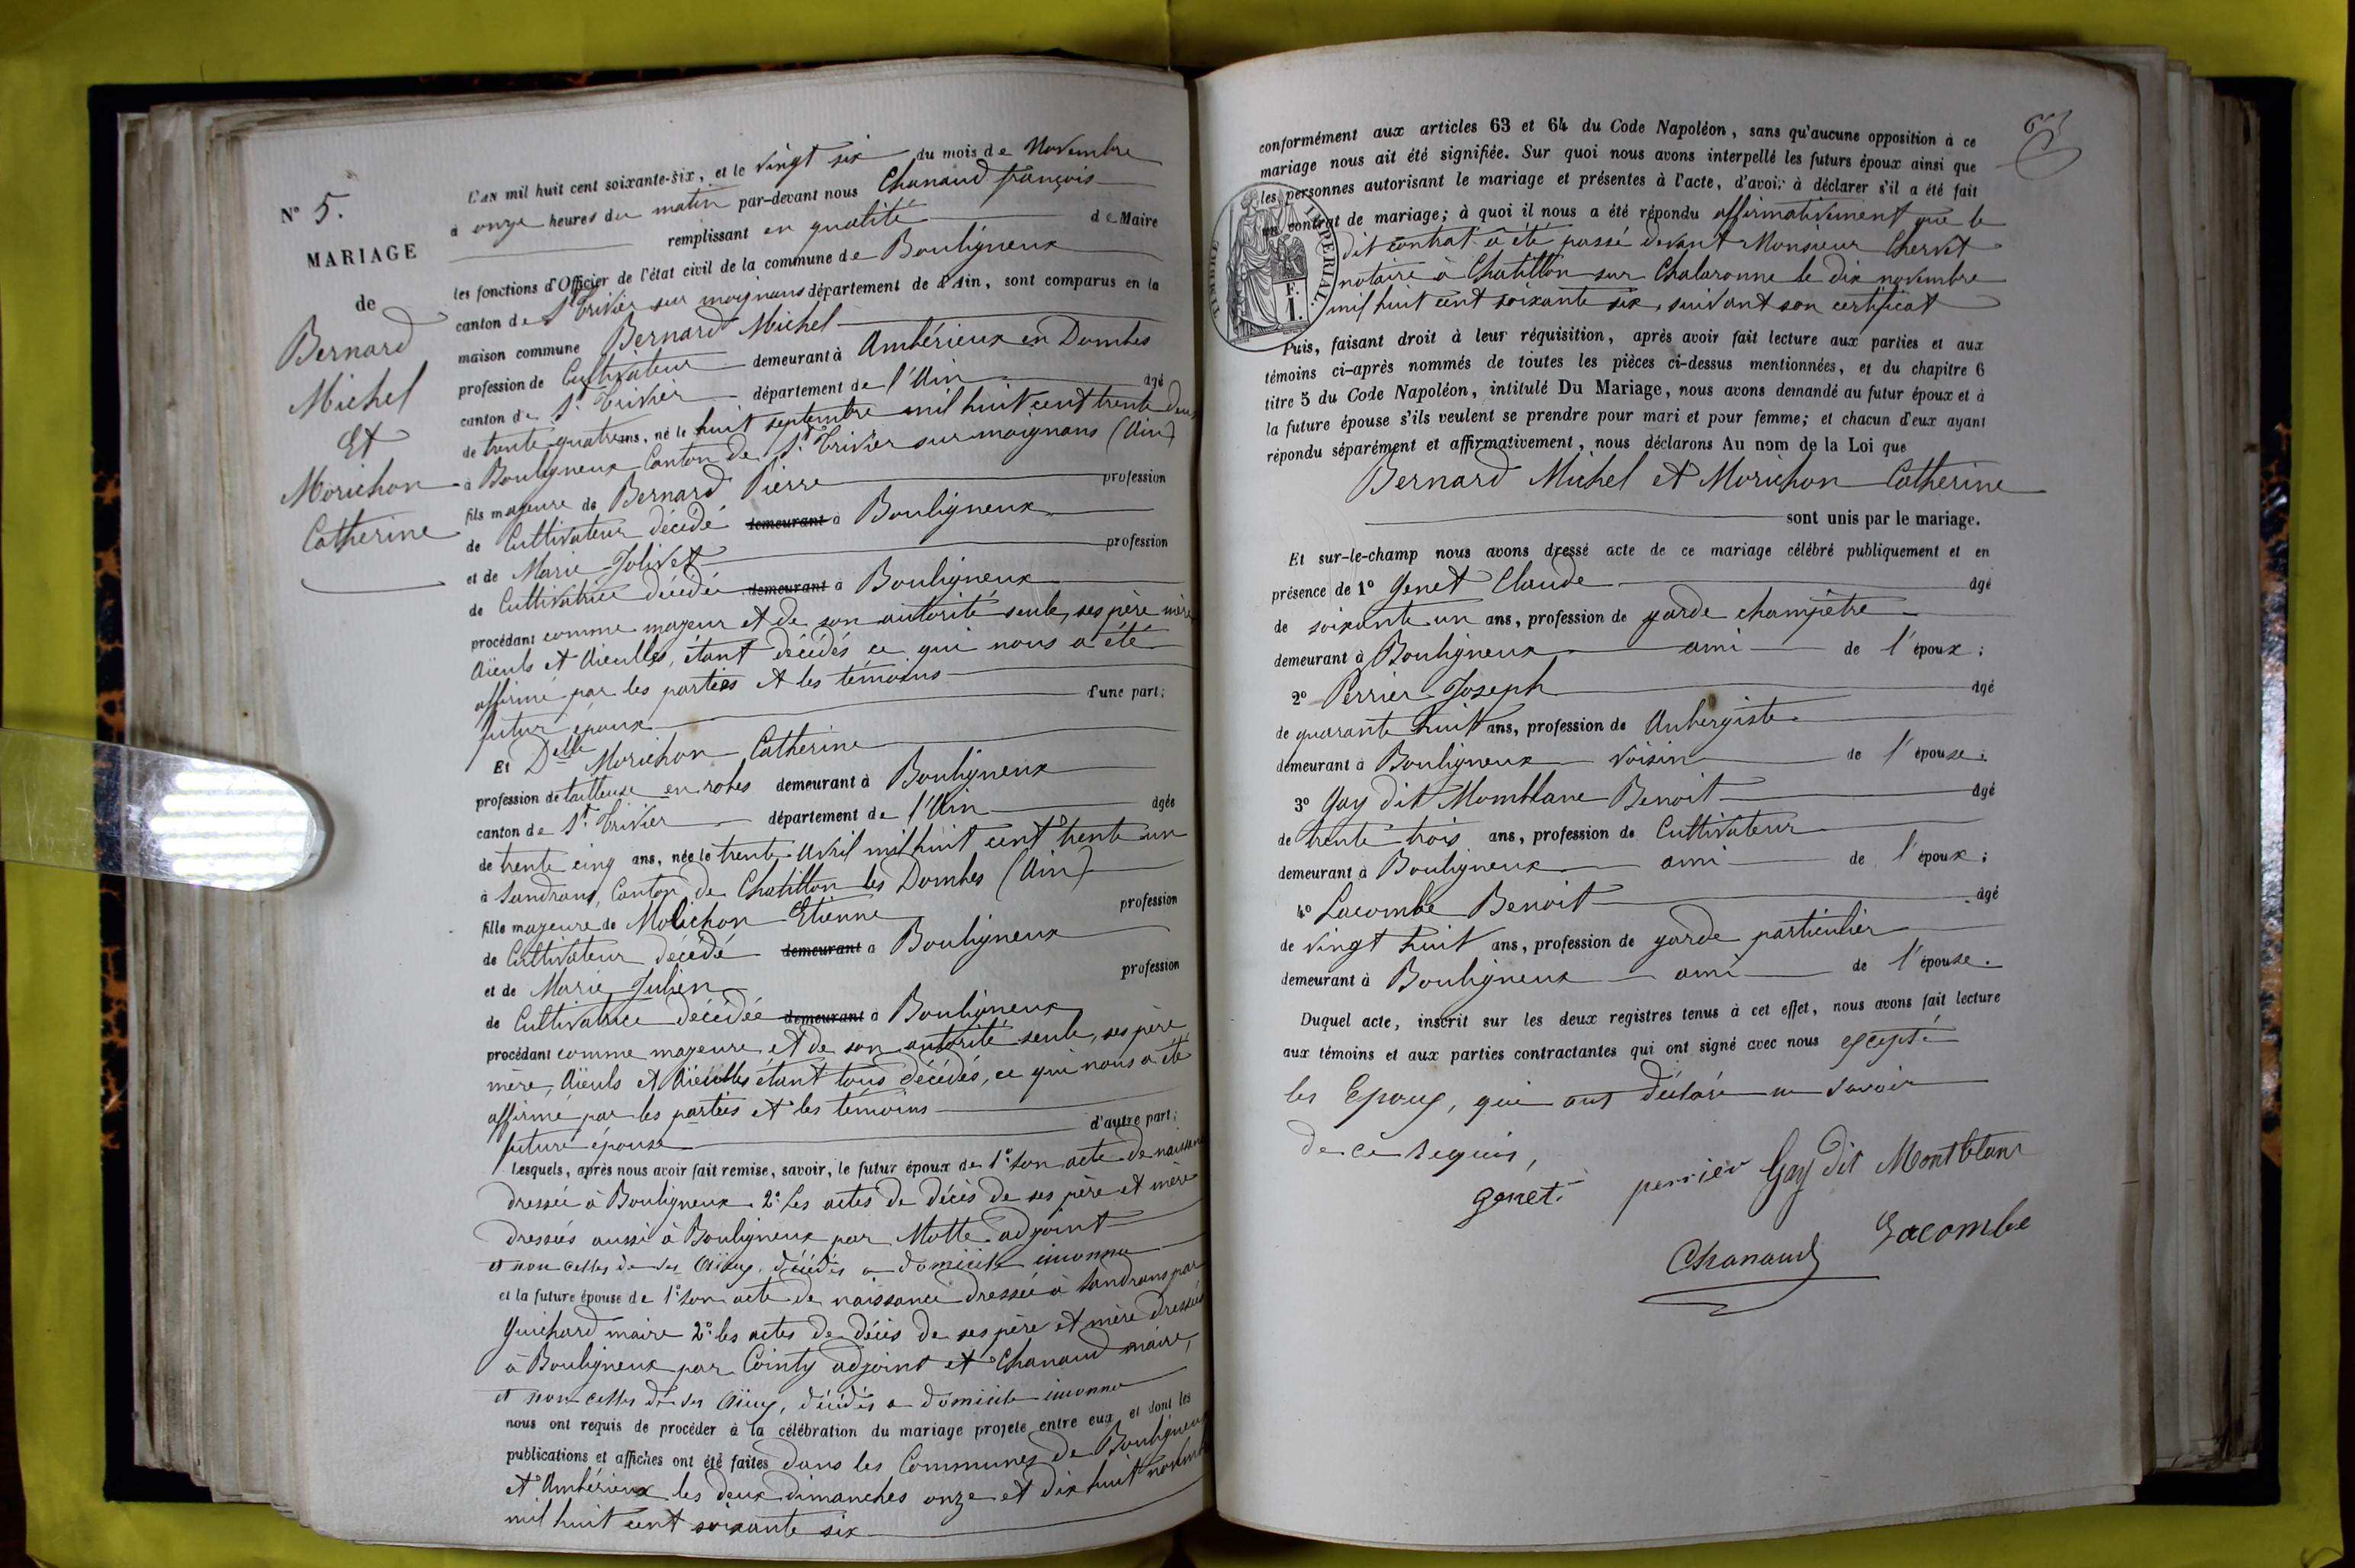 N° 5.
MARIAGE
de
Bernard
Michel
Et
Morichon
Catherine
L'AN mil huit cent soixante-six, et le vingt six du mois de Novembre
à onze heures du matin par-devant nous Chanaud françois
remplissant en qualité de Maire
les fonctions d'Officier de l'état civil de la commune de Bouligneux
canton de St Trivier sur moignans département de l'Ain, sont comparus en la
maison commune Bernard Michel
profession de Cultivateur demeurant à Ambérieux en Dombes
canton de St Trivier département de l'Ain âgé
de trente quatre ans, né le huit septembre mil huit cent trente deux
à Bouligneux Canton de St Trivier sur moignans (Ain)
fils majeure de Bernard Pierre profession
de Cultivateur décédé demeurant à Bouligneux
et de Marie Jolivet profession
de Cultivatrice décédée demeurant à Bouligneux
procédant comme majeur et de son autorité seule, ses père mère
Aïeuls et Aieulles, étant décédés ce qui nous a été
affirmé par les parties et les témoins
futur époux d'une part;
Et Delle Morichon Catherine
profession de tailleuse en robes demeurant à Bouligneux
canton de St Trivier département de l'Ain âgée
de trente cinq ans, née le trente Avril mil huit cent trente un
à Sandrans, Canton de Chatillon les Dombes (Ain)
fille majeure de Molichon Etienne profession
de Cultivateur décédé demeurant à Bouligneux
et de Marie Julien profession
de Cultivatrice décédée demeurant à Bouligneux
procédant comme majeure et de son autorité seule, ses père
mère, Aïeuls et Aïeulles étant tous décédés, ce qui nous a été
affirmé par les parties et les témoins
future épouse d'autre part;
Lesquels, après nous avoir fait remise, savoir, le futur époux de 1° son acte de naissance
dressée à Bouligneux 2° les actes de décès de ses père et mère
dressés aussi à Bouligneux par Motte adjoint
et non celles de ses Aïeux, décédés a domicile inconnu
et la future épouse de 1° son acte de naissance dressée à Sandrans par
Guichard maire 2° les actes de décès de ses père et mère dressés
à Bouligneux par Cointy adjoint et Chanaud maire,
et non celles de ses Aïeux, décédés a domicile inconnu
nous ont requis de procéder à la célébration du mariage projeté entre eux et dont les
publications et affiches ont été faites dans les Communes de Bouligneux
et Ambérieux les deux dimanches onze et dix huit novembre
mil huit cent soixante six
conformément aux articles 63 et 64 du Code Napoléon, sans qu'aucune opposition à ce
mariage nous ait été signifiée. Sur quoi nous avons interpellé les futurs époux ainsi que
les personnes autorisant le mariage et présentes à l'acte, d'avoir à déclarer s'il a été fait
un contrat de mariage; à quoi il nous a été répondu affirmativement que le
dit contrat a été passé devant Monsieur Chervet
notaire à Chatillon sur Chalaronne le dix novembre
mil huit cent soixante six, suivant son certificat
TIMBRE IMPÉRIAL.
F.
1.
Puis, faisant droit à leur réquisition, après avoir fait lecture aux parties et aux
témoins ci-après nommés de toutes les pièces ci-dessus mentionnées, et du chapitre 6
titre 5 du Code Napoléon, intitulé Du Mariage, nous avons demandé au futur époux et à
la future épouse s'ils veulent se prendre pour mari et pour femme; et chacun d'eux ayant
répondu séparément et affirmativement, nous déclarons Au nom de la Loi que
Bernard Michel et Morichon Catherine
sont unis par le mariage.
Et sur-le-champ nous avons dressé acte de ce mariage célébré publiquement et en
présence de 1° Genet Claude âgé
de soixante un ans, profession de garde champêtre
demeurant à Bouligneux ami de l'époux;
2° Perrier Joseph âgé
de quarante huit ans, profession de Aubergiste
demeurant à Bouligneux voisin de l'épouse;
3° Gay dit Momblanc Benoit âgé
de trente trois ans, profession de Cultivateur
demeurant à Bouligneux ami de l'époux;
4° Lacombe Benoit âgé
de vingt huit ans, profession de garde particulier
demeurant à Bouligneux ami de l'épouse.
Duquel acte, inscrit sur les deux registres tenus à cet effet, nous avons fait lecture
aux témoins et aux parties contractantes qui ont signé avec nous excepté
les Epoux, qui ont déclaré ne savoir
de ce requis,
genet. perrier Gay dit Montblanc
Chanaud Lacombe